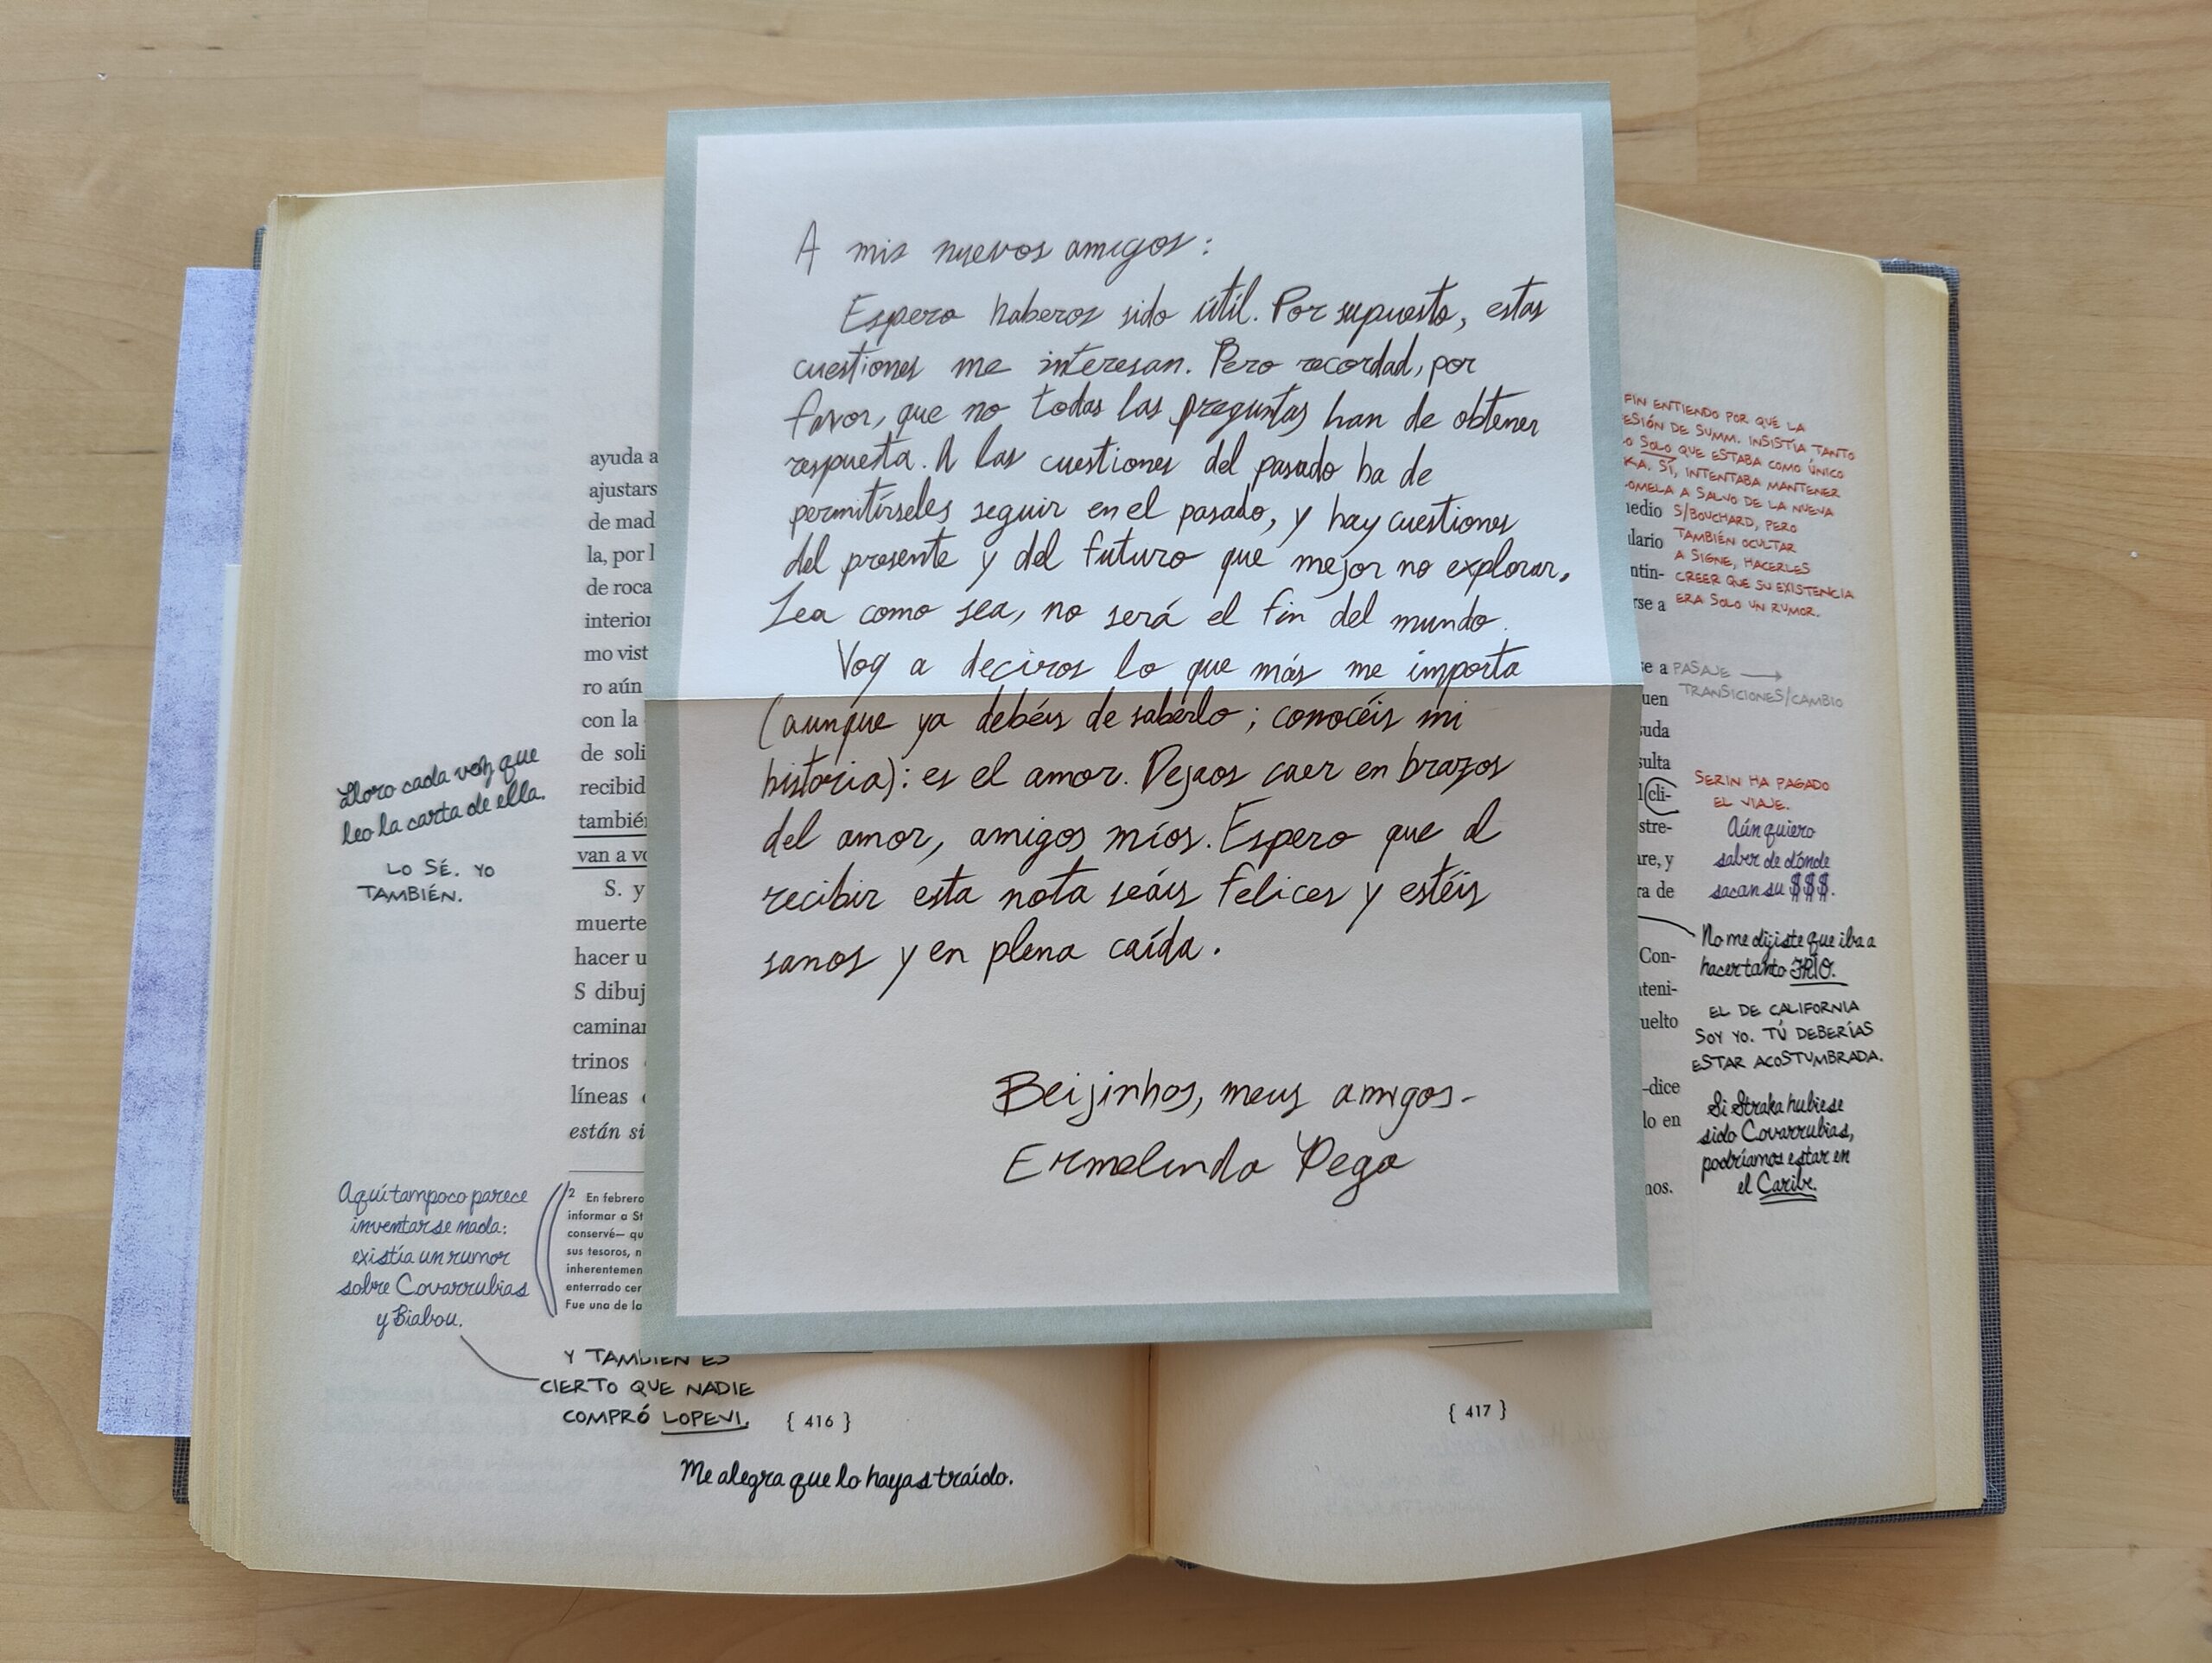 A mis nuevos amigos:
Espero haberos sido útil. Por supuesto, estas
cuestiones me interesan. Pero recordad, por
favor, que no todas las preguntas han de obtener
respuesta. A las cuestiones del pasado ha de
permitírseles seguir en el pasado, y hay cuestiones
del presente y del futuro que mejor no explorar.
Sea como sea, no será el fin del mundo.
Voy a deciros lo que más me importa
(aunque ya debéis de saberlo; conocéis mi
historia): es el amor. Dejaos caer en brazos
del amor, amigos míos. Espero que al
recibir esta nota seáis felices y estéis
sanos y en plena caída.
Beijinhos, meus amigos-
Ermelinda Pega
ayuda a
ajustars
de mad
la, por l
de roca
interior
mo vist
ro aún
con la
de soli
recibid
tambié
van a v
S. y
muerte
hacer u
S dibuj
caminar
trinos
líneas
están si
Lloro cada vez que
leo la carta de ella.
LO SÉ. YO
TAMBIÉN.
Aquí tampoco parece
inventarse nada:
existía un rumor
sobre Covarrubias
y Biabou.
2 En febrero
informar a St
conservé— qu
sus tesoros, n
inherentemen
enterrado cer
Fue una de la
Y TAMBIÉN ES
CIERTO QUE NADIE
COMPRÓ LOPEVI.
{ 416 }
Me alegra que lo hayas traído.
FIN ENTIENDO POR QUÉ LA
ESIÓN DE SUMM. INSISTÍA TANTO
O SOLO QUE ESTABA COMO ÚNICO
KA. SÍ, INTENTABA MANTENER
OMELA A SALVO DE LA NUEVA
S/BOUCHARD, PERO
TAMBIÉN OCULTAR
A SIGNE, HACERLES
CREER QUE SU EXISTENCIA
ERA SOLO UN RUMOR.
medio
lario
ntin-
rse a
se a
uen
suda
sulta
l cli-
stre-
are, y
ra de
Con-
teni-
uelto
—dice
lo en
nos.
PASAJE →
TRANSICIONES/CAMBIO
SERIN HA PAGADO
EL VIAJE.
Aún quiero
saber de dónde
sacan su $$$.
No me dijiste que iba a
hacer tanto FRÍO.
EL DE CALIFORNIA
SOY YO. TÚ DEBERÍAS
ESTAR ACOSTUMBRADA.
Si Straka hubiese
sido Covarrubias,
podríamos estar en
el Caribe.
{ 417 }